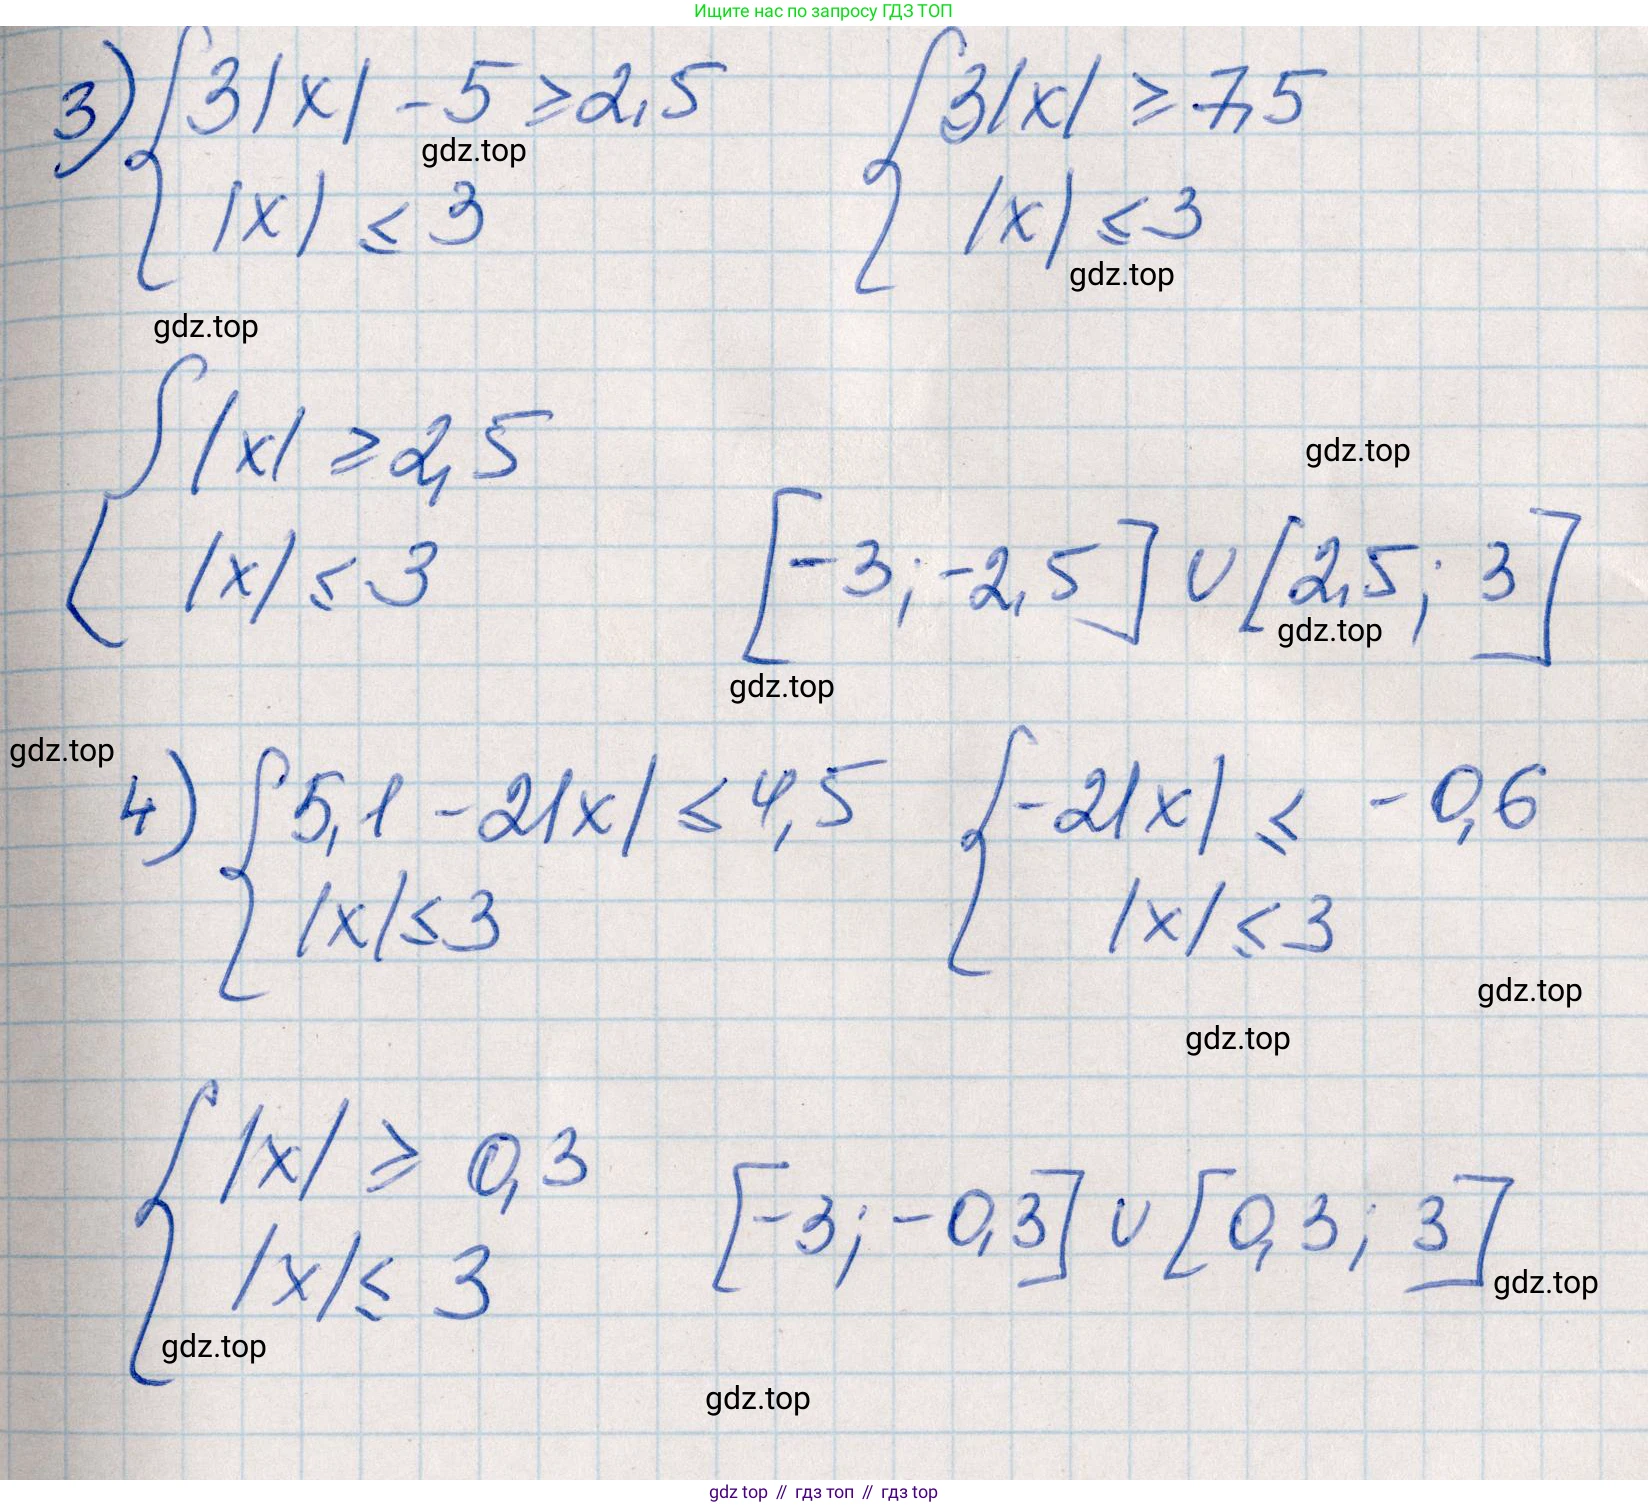 Ищите нас по запросу ГДЗ ТОП
3) { 3|x| - 5 ≥ 2,5 { 3|x| ≥ 7,5
gdz.top
|x| ≤ 3 |x| ≤ 3
gdz.top
gdz.top
{ |x| ≥ 2,5
gdz.top
|x| ≤ 3 [-3; -2,5] ∪ [2,5; 3]
gdz.top
gdz.top
gdz.top
4) { 5,1 - 2|x| ≤ 4,5 { -2|x| ≤ -0,6
|x| ≤ 3 |x| ≤ 3
gdz.top
gdz.top
{ |x| ≥ 0,3
[-3; -0,3] ∪ [0,3; 3]
|x| ≤ 3
gdz.top
gdz.top
gdz.top
gdz top // гдз топ // гдз top